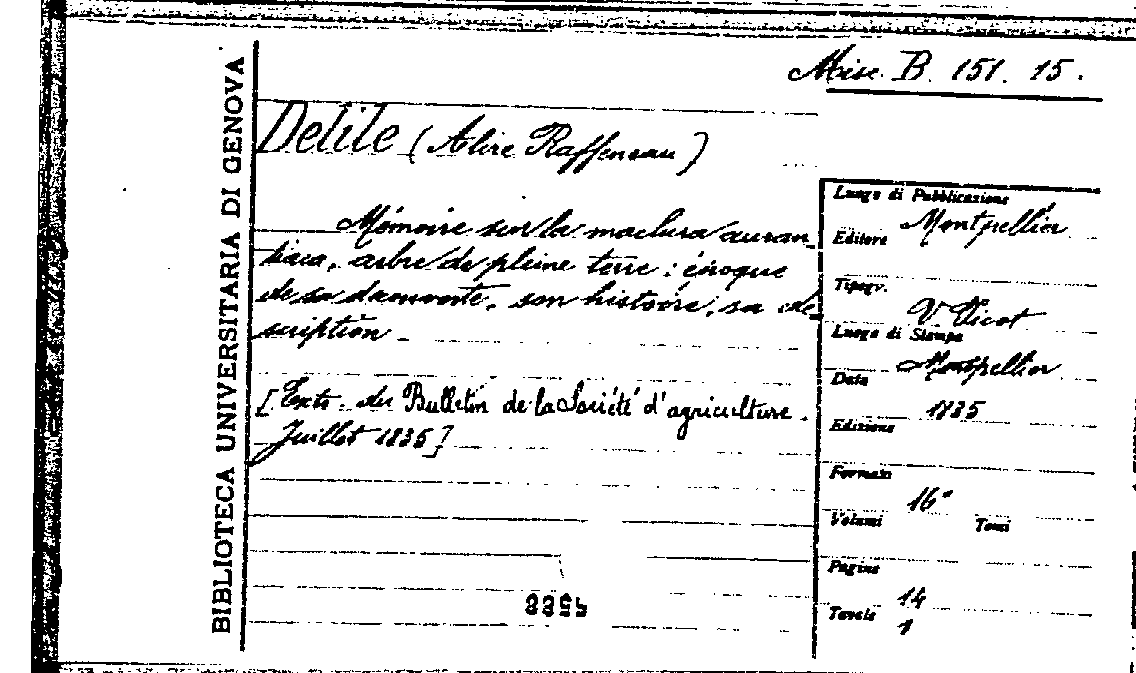 BIBLIOTECA UNIVERSITARIA DI GENOVA
Misc. B. 151. 15.
Delile (Alire Raffeneau)
Mémoire sur la maclura auran
tiaca, arbre de pleine terre : époque
de sa découverte, son histoire, sa de
scription
[Extr. du Bulletin de la Société d'agriculture.
Juillet 1835]
Luogo di Pubblicazione
Montpellier
Editore
Tipogr.
V. Picot
Luogo di Stampa
Montpellier
Data
1835
Edizione
Formato
16°
Volumi Tomi
Pagine
14
Tavole
1